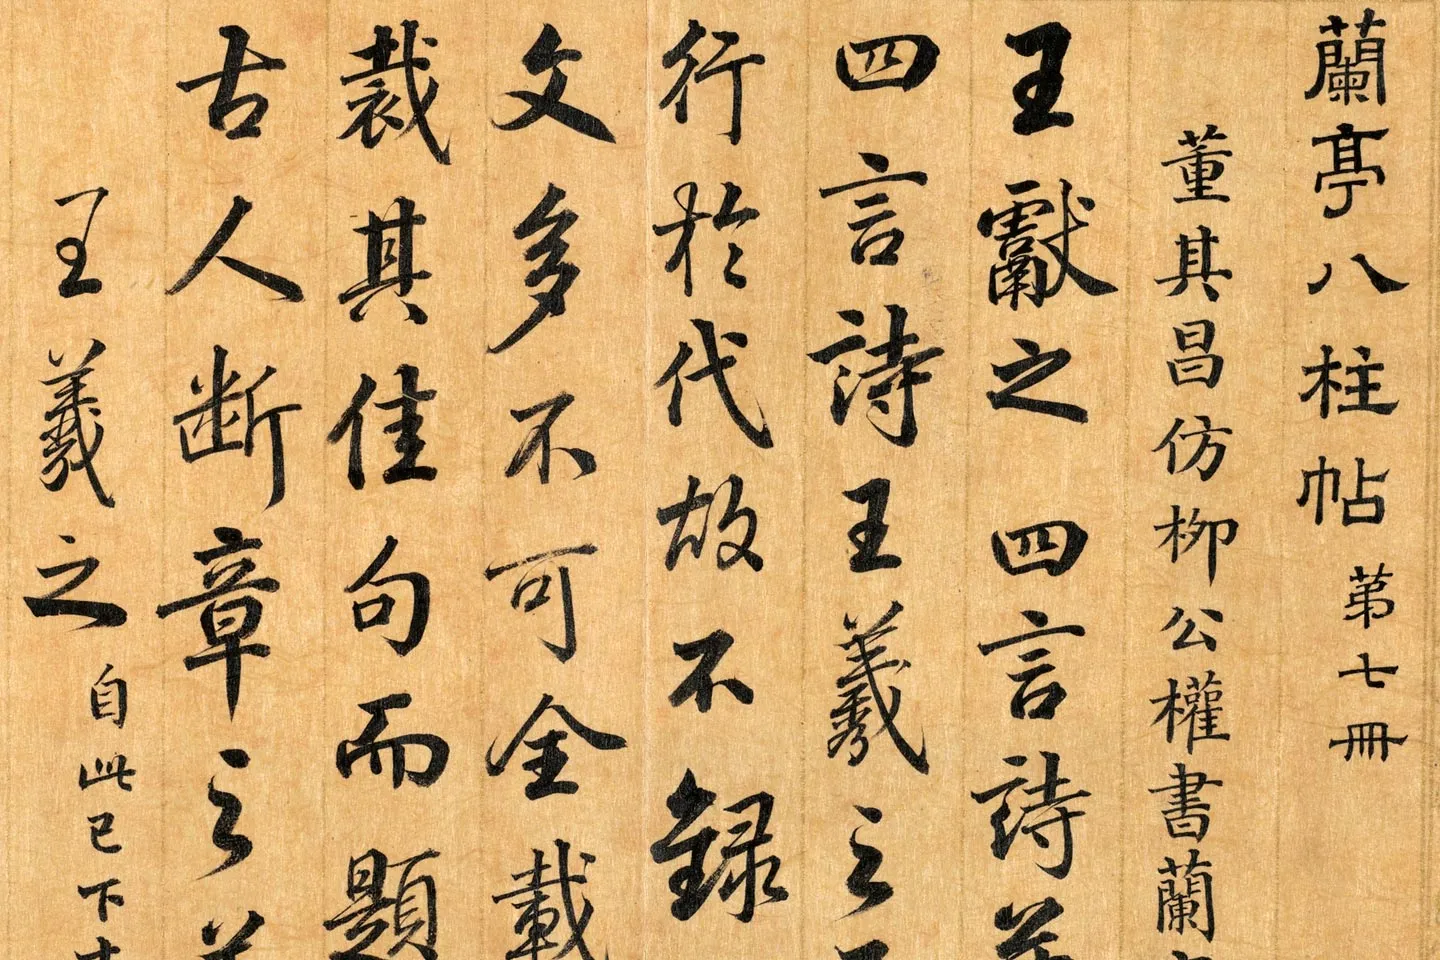 蘭亭八柱帖 第七冊
董其昌仿柳公權書蘭
王獻之四言詩
四言詩王羲之
行於代故不錄
文多不可全載
裁其佳句而題
古人断章之義
王羲之 自此已下